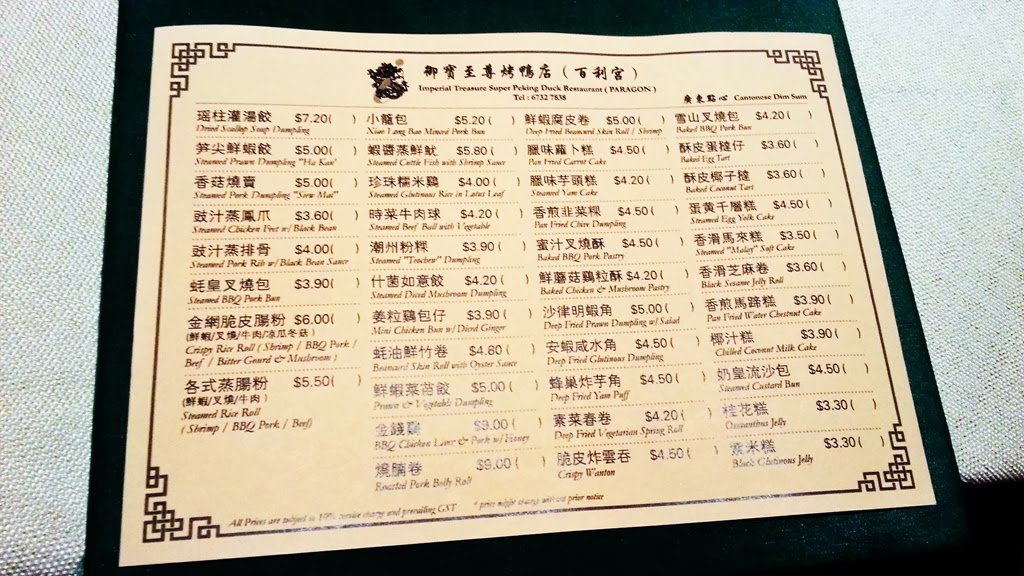 御寶至尊烤鴨店（百利宮）
Imperial Treasure Super Peking Duck Restaurant ( PARAGON )
Tel : 6732 7838
廣東點心 Cantonese Dim Sum
瑤柱灌湯餃 $7.20( )
Dried Scallop Soup Dumpling
笋尖鮮蝦餃 $5.00( )
Steamed Prawn Dumpling "Ha Kau"
香菇燒賣 $5.00( )
Steamed Pork Dumpling "Siew Mai"
豉汁蒸鳳爪 $3.60( )
Steamed Chicken Feet w/ Black Bean
豉汁蒸排骨 $4.00( )
Steamed Pork Rib w/ Black Bean Sauce
蚝皇叉燒包 $3.90( )
Steamed BBQ Pork Bun
金網脆皮腸粉 $6.00( )
(鮮蝦/叉燒/牛肉/凉瓜冬菇)
Crispy Rice Roll ( Shrimp / BBQ Pork /
Beef / Bitter Gourd & Mushroom )
各式蒸腸粉 $5.50( )
(鮮蝦/叉燒/牛肉)
Steamed Rice Roll
( Shrimp / BBQ Pork / Beef)
小籠包 $5.20( )
Xiao Long Bao Minced Pork Bun
蝦醬蒸鮮魷 $5.80( )
Steamed Cuttle Fish with Shrimp Sauce
珍珠糯米鷄 $4.00( )
Steamed Glutinous Rice in Lotus Leaf
時菜牛肉球 $4.20( )
Steamed Beef Ball with Vegetable
潮州粉粿 $3.90( )
Steamed "Teochew" Dumpling
什菌如意餃 $4.20( )
Steamed Diced Mushroom Dumpling
姜粒鷄包仔 $3.90( )
Mini Chicken Bun w/ Diced Ginger
蚝油鮮竹卷 $4.80( )
Beancurd Skin Roll with Oyster Sauce
鮮蝦菜苗餃 $5.00( )
Prawn & Vegetable Dumpling
金錢鷄 $9.00( )
BBQ Chicken Liver & Pork w/ Honey
燒腩卷 $9.00( )
Roasted Pork Belly Roll
鮮蝦腐皮卷 $5.00( )
Deep Fried Beancurd Skin Roll / Shrimp
臘味蘿卜糕 $4.50( )
Pan Fried Carrot Cake
臘味芋頭糕 $4.20( )
Steamed Yam Cake
香煎韭菜粿 $4.50( )
Pan Fried Chive Dumpling
蜜汁叉燒酥 $4.50( )
Baked BBQ Pork Pastry
鮮蘑菇鷄粒酥 $4.20( )
Baked Chicken & Mushroom Pastry
沙律明蝦角 $5.00( )
Deep Fried Prawn Dumpling w/ Salad
安蝦咸水角 $4.50( )
Deep Fried Glutinous Dumpling
蜂巢炸芋角 $4.50( )
Deep Fried Yam Puff
素菜春卷 $4.20( )
Deep Fried Vegetarian Spring Roll
脆皮炸雲吞 $4.50( )
Crispy Wanton
雪山叉燒包 $4.20( )
Baked BBQ Pork Bun
酥皮蛋撻仔 $3.60( )
Baked Egg Tart
酥皮椰子撻 $3.60( )
Baked Coconut Tart
蛋黃千層糕 $4.50( )
Steamed Egg Yolk Cake
香滑馬來糕 $3.50( )
Steamed "Malay" Soft Cake
香滑芝麻卷 $3.60( )
Black Sesame Jelly Roll
香煎馬蹄糕 $3.90( )
Pan Fried Water Chestnut Cake
椰汁糕 $3.90( )
Chilled Coconut Milk Cake
奶皇流沙包 $4.50( )
Steamed Custard Bun
桂花糕 $3.30( )
Osmanthus Jelly
紫米糕 $3.30( )
Black Glutinous Jelly
All Prices are subject to 10% service charge and prevailing GST * price might change without prior notice